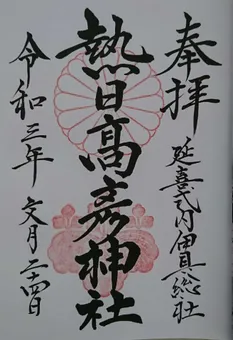 奉拝
延喜式内伊具総社
熱日高彦神社
令和三年
文月二十四日